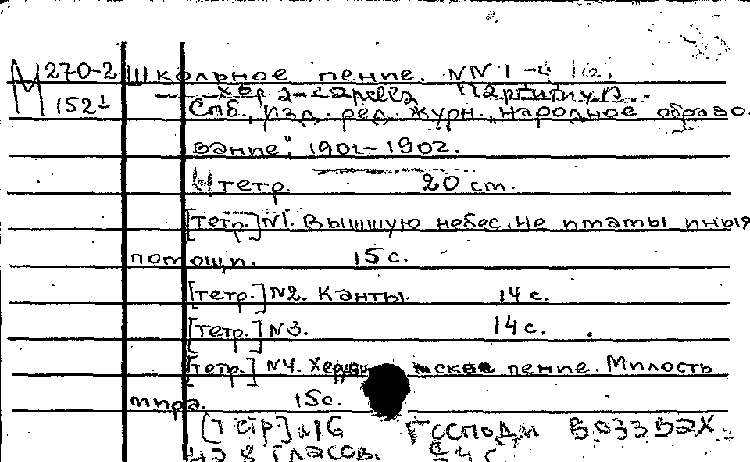 М 270-2 Школьное пение. NN 1-4 16.
1521 Хор a-capella Партитура.
Спб., изд. ред. журн. "Народное образо-
вание", 1901-1902.
4 тетр. 20 cm.
[тетр.] N1. Вышшую небес. Не имамы иныя
помощи. 15 с.
[тетр.] N2. Канты. 14 с.
[тетр.] N3. 14 с.
[тетр.] N4. ское пение. Милость
мира. 15с.
[тетр] N16 Господи воззвах.
на 8 гласов. с